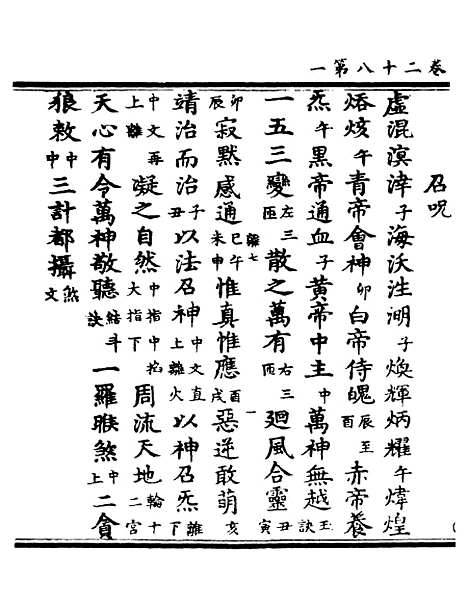 卷二十八第一
召呪
虛混溟涬子海沃泩湖子煥輝炳耀午煒煌
烙烗午青帝會神卯白帝侍魄辰至酉赤帝養
炁午黑帝通血子黃帝中主中萬神無越玉訣
一五三變左三匝散之萬有右三匝廻風合靈丑寅
卯辰寂默感通巳午未申離七惟真惟應酉戌惡逆敢萌亥
靖治而治子丑以法召神中文直上離火以神召炁離下
中文再上離凝之自然中指中掐大指下周流天地輪十二宮
天心有令萬神敬聽結斗訣一羅睺煞中上二貪
狼敕中中三計都攝煞文